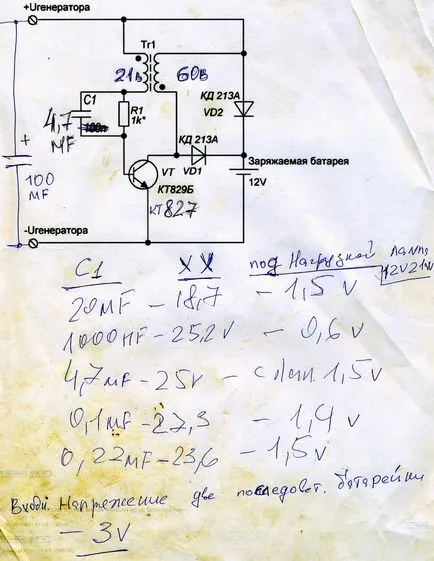 +Uгенератора
Tr1
21в 60в
C1
4,7
100n
MF
R1
1k*
КД 213А
VD2
КД 213А
VD1
+
100
MF
VT
КТ829Б
КТ 827
Заряжаемая батарея
12V
-Uгенератора
C1 XX под Нагрузкой лампа
12V21W
20MF – 18,7 – 1,5 V
1000НF – 25,2V – 0,6 V
4,7MF – 25V – 1,5V
0,1MF – 27,3 – 1,4 V
0,22MF – 23,6 – 1,5V
Входн. Напряжение две последоват. батарейки
– 3V